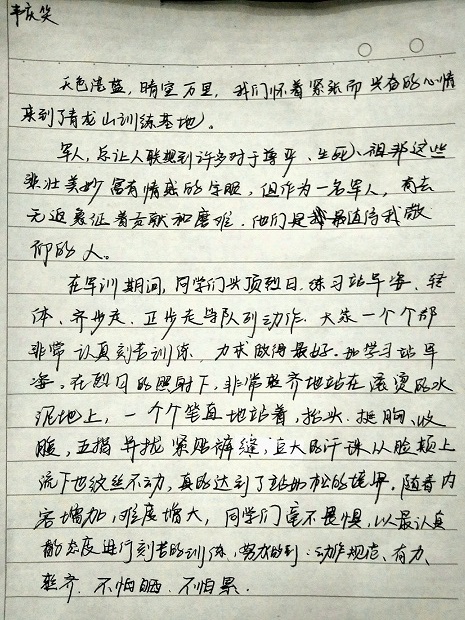 韦庆笑
天色湛蓝,晴空万里,我们怀着紧张而兴奋的心情
来到了青龙山训练基地。
军人,总让人联想到许多对于尊严、生死、祖非这些
悲壮美妙富有情感的字眼,但作为一名军人,有去
无返象征着贡献和磨难。他们是最值得我敬
仰的人。
在军训期间,同学们头顶烈日.练习站军姿、转
体、齐步走、正步走与队列动作.大家一个个都
非常认真刻苦训练,力求做得最好.如学习站军
姿.在烈日的照射下,非常整齐地站在滚烫的水
泥地上,一个个笔直地站着,抬头.挺胸、收
腹,五指并拢紧贴裤缝;豆大的汗珠从脸颊上
流下也纹丝不动,真的达到了站如松的境界.随着内
容增加,难度增大,同学们毫不畏惧,以最认真
的态度进行刻苦的训练,努力做到:动作规范、有力、
整齐.不怕晒.不怕累.